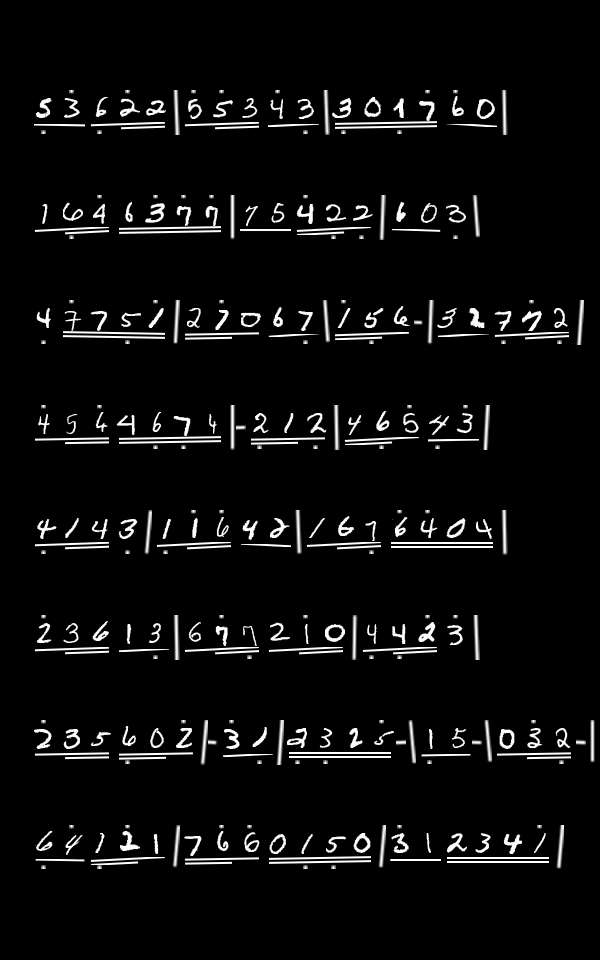 53622|55343|301760
1646377|75422|603
47751|27067|156-|32772
4564674|-212|46543
4143|11642|1676404
23613|677210|4423
235602|-31|2325-|15-|032-|
64121|7660150|312341